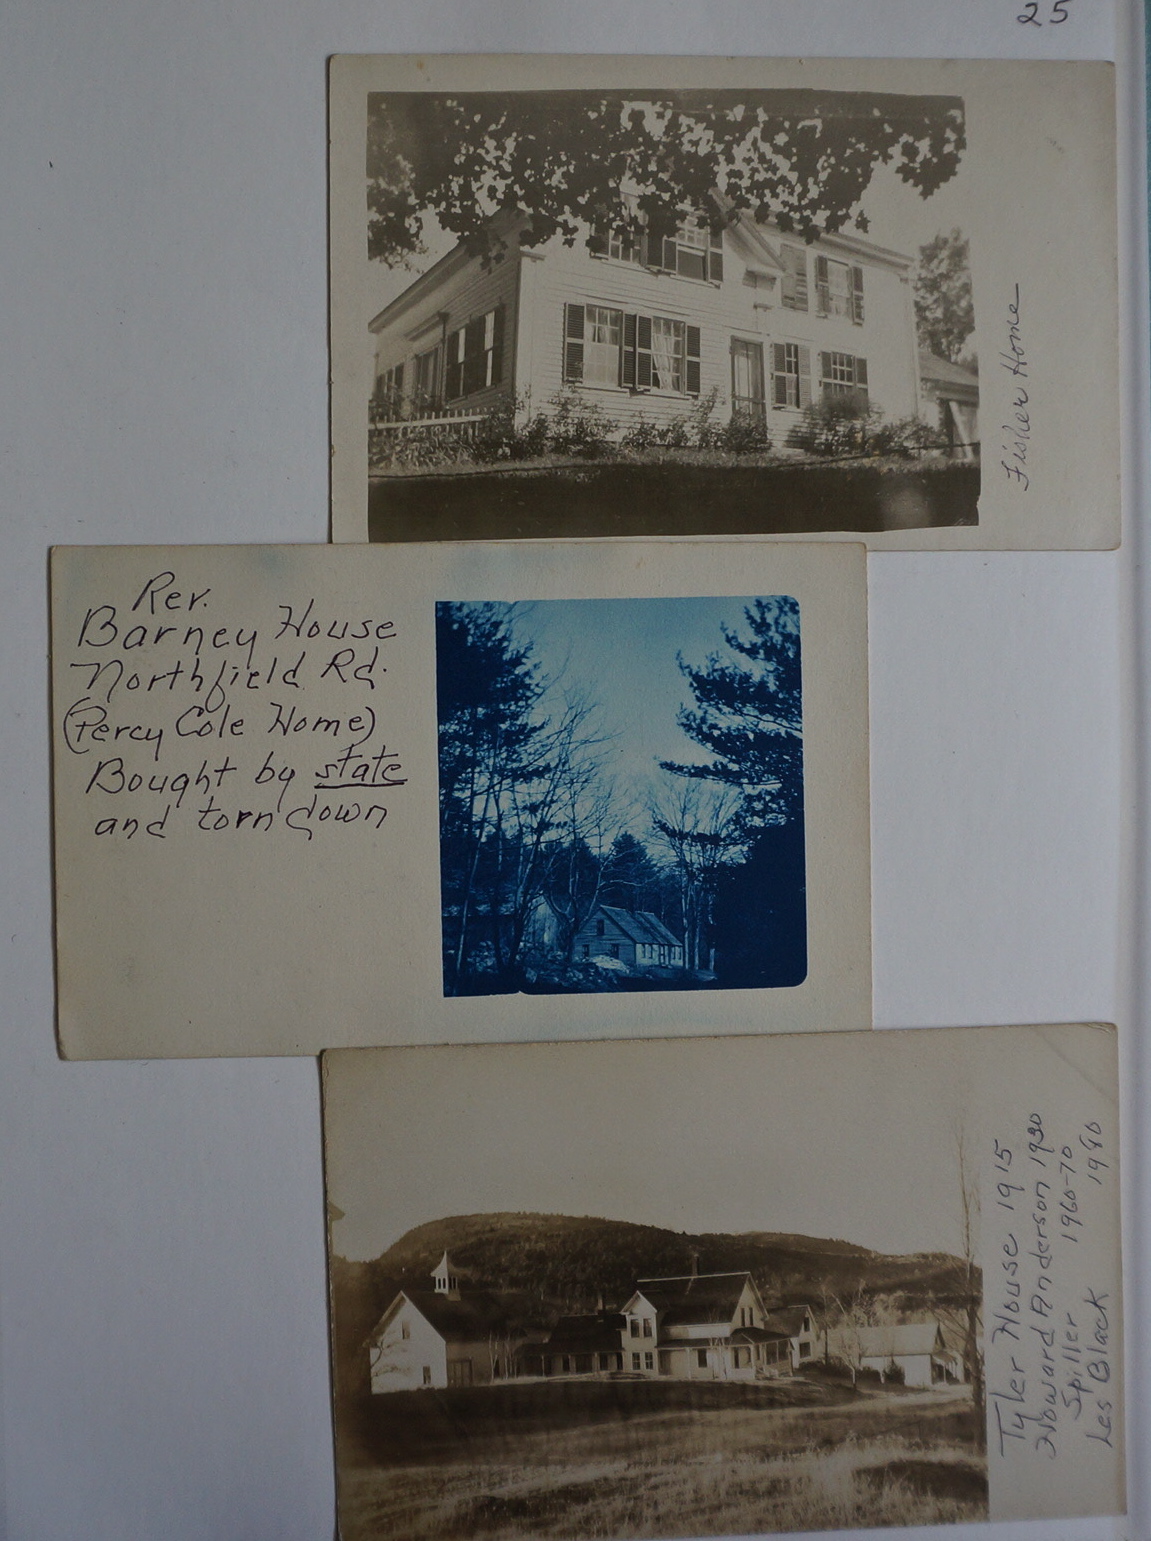 25
Fisher Home
Rev.
Barney House
Northfield Rd.
(Percy Cole Home)
Bought by state
and torn down
Tyler House 1915
Howard Anderson 1930
Spiller 1960-70
Les Black 1980